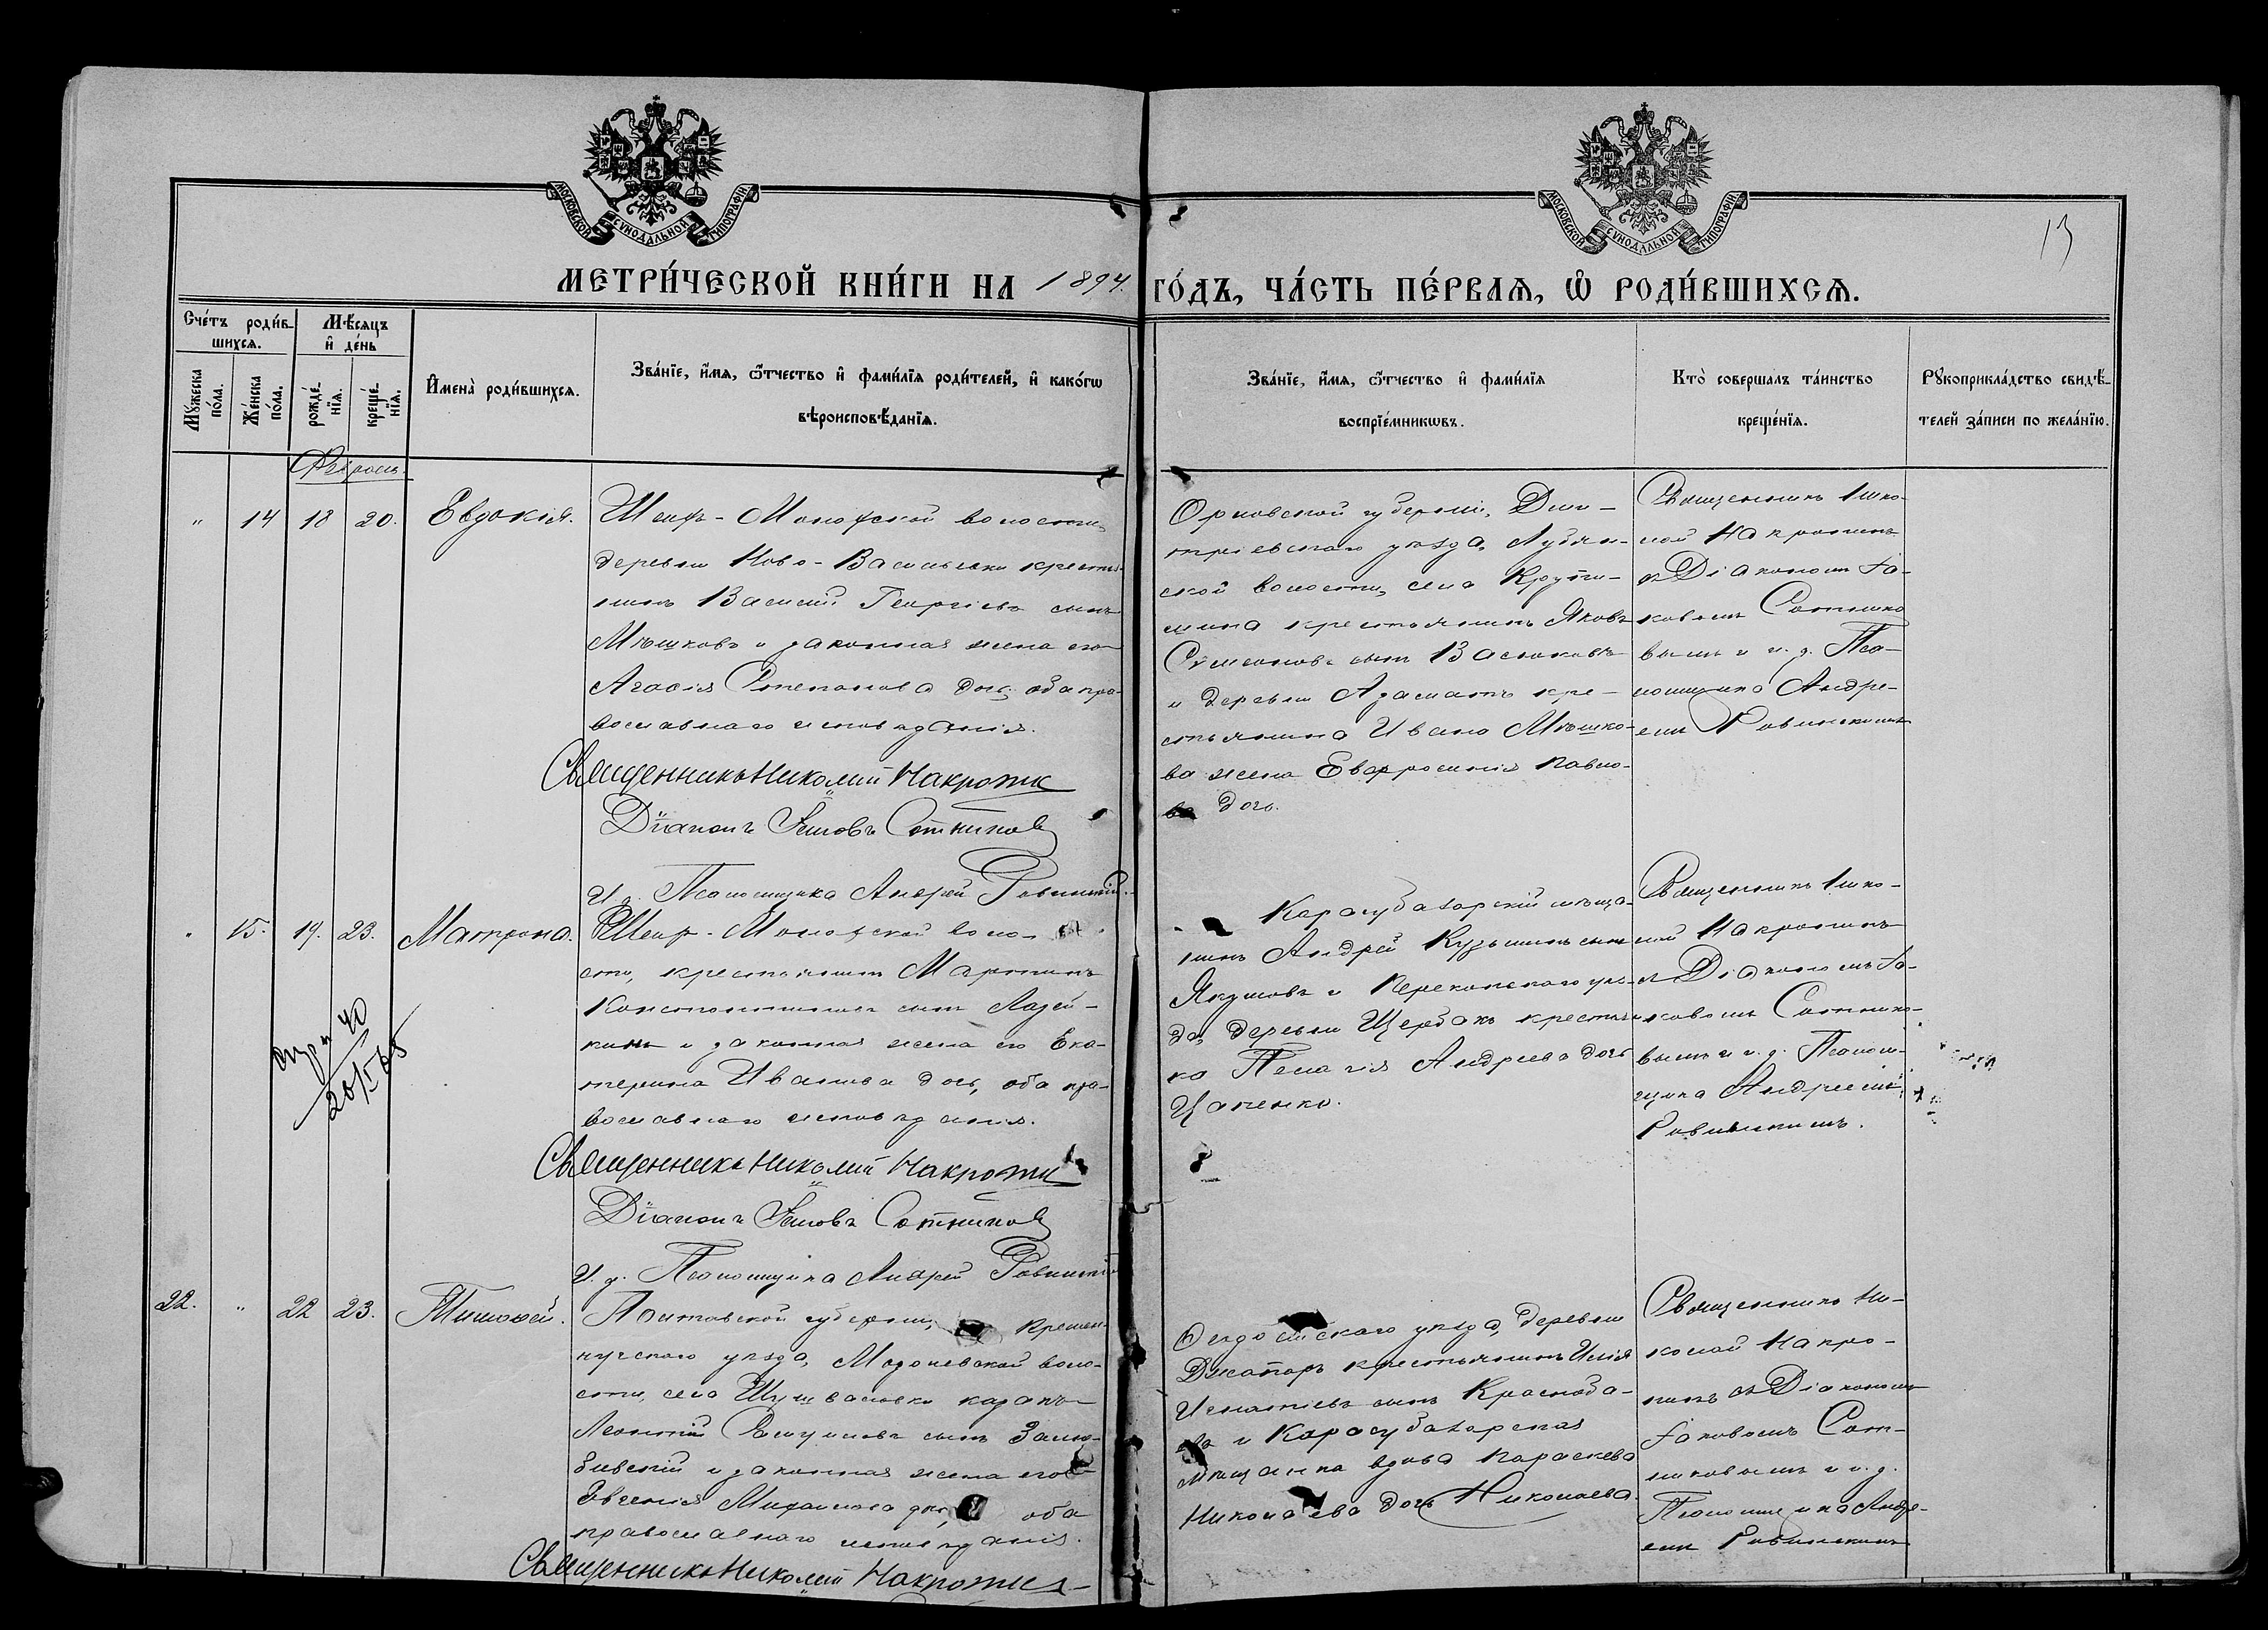 МОСКОВСКОЙ СѴНОДАЛЬНОЙ ТИПОГРАФІИ
МОСКОВСКОЙ СѴНОДАЛЬНОЙ ТИПОГРАФІИ
13
МЕТРИ́ЧЕСКОЙ КНИ́ГИ НА 1894. ГО́ДЪ, ЧА́СТЬ ПЕ́РВАѦ, Ѡ РОДИ́ВШИХСѦ.
Сче́тъ роди́в-
шихсѧ.
Мѣ́сѧцъ
и҆ де́нь
Мꙋ́жеска
по́ла.
Же́нска
по́ла.
рожде́-
нїѧ.
креще́-
нїѧ.
И҆мена̀ роди́вшихсѧ.
Зва́нїе, и҆́мѧ, ѻ҆́тчество и҆ фами́лїѧ роди́телей, и҆ како́гѡ
вѣроисповѣ́данїѧ.
Зва́нїе, и҆́мѧ, ѻ҆́тчество и҆ фами́лїѧ
воспрїе́мникѡвъ.
Кто̀ соверша́лъ та́инство
креще́нїѧ.
Рꙋкоприкла́дство свидѣ́-
телей за́писи по жела́нїю.
Февраль.
" 14 18 20. Евдокія.
Шейх-Монахской волости,
деревни Ново-Васильевки крестья-
нинъ Василій Георгіевъ сынъ
Мѣшковъ и законная жена его
Агаѳія Степанова дочь, оба пра-
вославнаго исповѣданія.
Священникъ Николай Накропинъ
Діаконъ Іаковъ Сотниковъ
И. д. Псаломщика Андрей Ровинскій.
Орловской губерніи, Дми-
тріевскаго уѣзда,
ской волости, села
крестьянинъ Яковъ
Симеоновъ сынъ Васюковъ
и деревни Азаматъ кре-
стьянина Ивана Мѣшко-
ва жена Евфросинія Павло-
ва дочь.
Священникъ Нико-
лай Накропинъ
съ Діакономъ Іа-
ковомъ Сотнико
вымъ и и. д. Пса-
ломщика Андре-
емъ Ровинскимъ
" 15. 19. 23. Матрона.
Шейх-Монахской воло-
сти, крестьянинъ Мартинъ
Константиновъ сынъ Лазей-
кинъ и законная жена его Ека-
терина Иванова дочь, оба пра-
вославнаго исповѣданія.
Священникъ Николай Накропинъ
Діаконъ Іаковъ Сотниковъ
И. д. Псаломщика Андрей Ровинскій
Карасубазарскій мѣща-
нинъ Андрей Кузьминъ сынъ
Якушовъ и Перекопскаго уѣз-
да, деревни Щербакъ крестьян-
ка Пелагія Андреева дочь
Цапенко.
Священникъ Нико-
лай Накропинъ
съ Діакономъ Іа-
ковомъ Сотнико-
вымъ и и. д. Псалом-
щика Андреемъ
Ровинскимъ.
22. " 22 23. Тимоѳей.
Полтавской губерніи, Кремен-
чугскаго уѣзда, воло-
сти, села казакъ
Леонтій сынъ
и законная жена его
Евгенія Михайлова дочь, оба
православнаго исповѣданія.
Священникъ Николай Накропинъ
Ѳеодосійскаго уѣзда, деревни
крестьянинъ Илія
Игнатіевъ сынъ
и Карасубазарская
мѣщанка вдова Параскева
Николаева дочь Николаева.
Священникъ Ни-
колай Накро-
пинъ съ Діакономъ
Іаковомъ Сот-
никовымъ и и. д.
Псаломщика Андре-
емъ Ровинскимъ